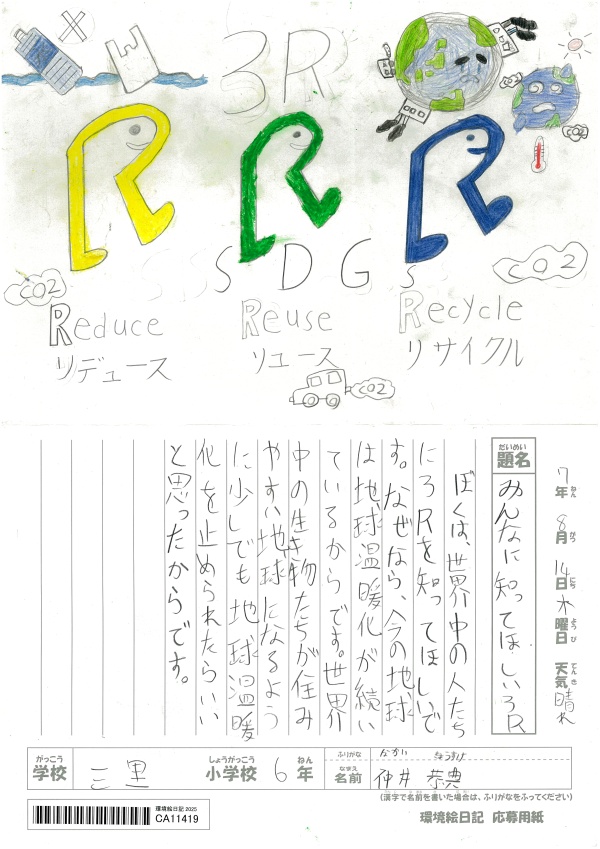 3R
CO2
S D G s
CO2
Reduce
リデュース
Reuse
リユース
Recycle
リサイクル
CO2
7年 8月 14日 木曜日 天気 晴れ
ねん がつ にち ようび てんき
だいめい
題名
みんなに知ってほしい3R
ぼくは、世界中の人たち
に3Rを知ってほしいで
す。なぜなら、今の地球
は地球温暖化が続い
ているからです。世界
中の生き物たちが住み
やすい地球になるよう
に少しでも地球温暖
化を止められたらいい
と思ったからです。
がっこう
学校
三里
しょうがっこう
小学校
6
ねん
年
ふりがな
なまえ
名前
仲井 恭典
(漢字で名前を書いた場合は、ふりがなをふってください)
環境絵日記 2025
CA11419
環境絵日記 応募用紙